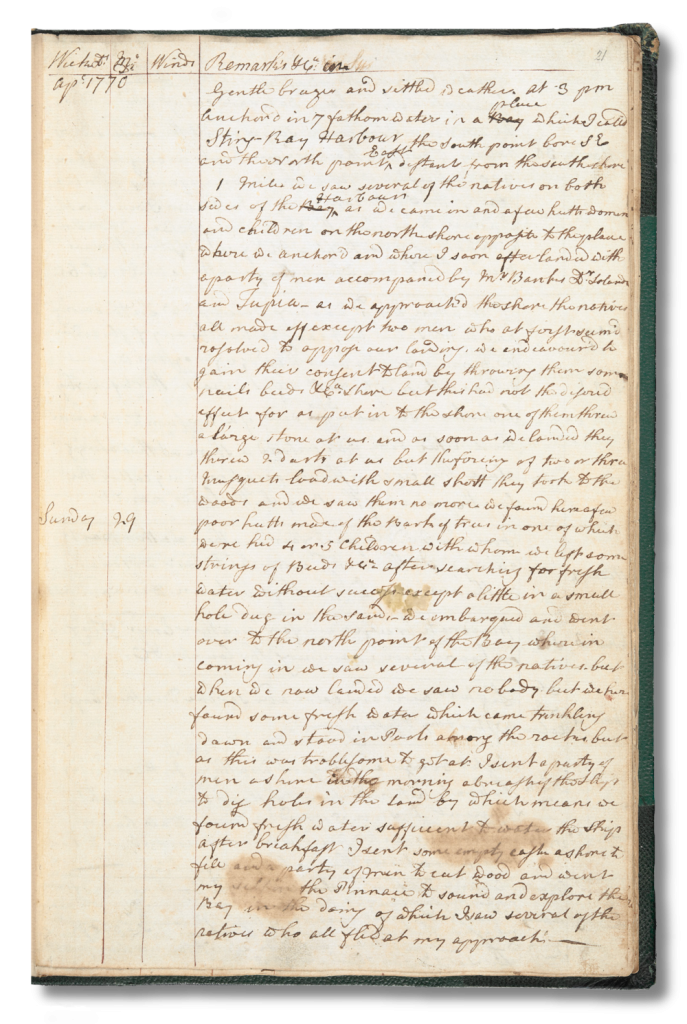 21
Week Ds. Mo. Winds Remarks &Ca. in
Apl. 1770
Gentle breezes and settled weather. at 3 pm
Anchor'd in 7 fathom water in a Bay place which I call'd
Sting-Ray Harbour, the south point bore SE
and the north point East, distant from the south shore
1 Mile. we saw several of the natives on both
sides of the Bay Harbour as we came in and a few hutts women
and children on the north shore opposite to the place
where we anchor'd and where I soon after landed with
a party of men accompaned by Mr. Banks Dr. Solander
and Tupia - as we approached the shore the natives
all made off except two men who at first seem'd
resolved to oppose our landing. we endeavour'd to
gain their consent to land by throwing them some
nails beeds &Ca. shore but this had not the desired
effect for as put in to the shore one of them threw
a large stone at us and as soon as we landed they
threw 2 darts at us but the fireing of two or three
musquets load with small shott they took to the
woods and we saw them no more we found here a few
poor hutts made of the bark of trees in one of which
were hid 4 or 5 Children with whom we left some
Sunday 29
strings of Beeds &Ca. after searching for fresh
water without success except a little in a small
hole dug in the sand, we embarqued and went
over to the north point of the Bay where in
coming in we saw several of the natives. but
when we now landed we saw no body. but we here
found some fresh water which came trinkling
down and stood in Pools among the rocks but
as this was troblesome to get at I sent a party of
men a shore in the morning abreast of the Ship
to dig holes in the sand by which means we
found fresh water sufficient to water the ship
after breakfast I sent some empty casks a shore to
fill and a party of men to cut wood and went
my self in the Pinnace to sound and explore the
Bay in the doing of which I saw several of the
natives who all fled at my approach. —